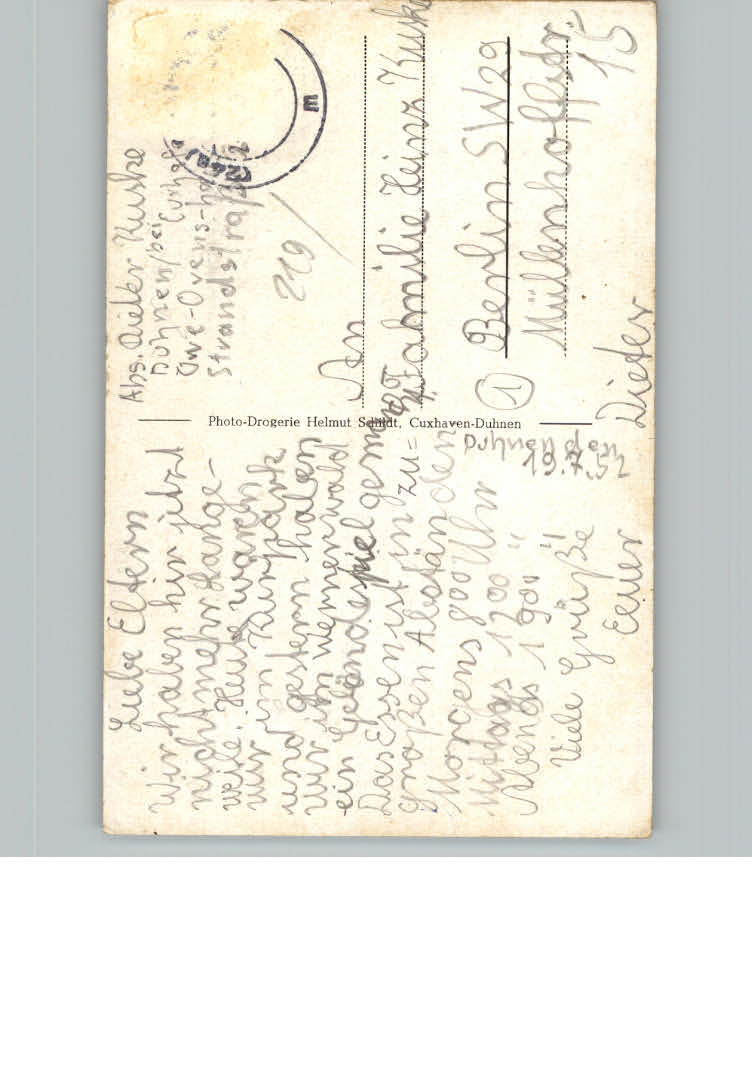 Abs. Dieter Kuske
Duhnen/bei Cuxhav
Uwe-Ovens-ha
Strandstraß
(24a)
m
219
An
Familie Heinz Kuske
Berlin SW29
Müllenhoffstr.
15
1
Photo-Drogerie Helmut Schildt, Cuxhaven-Duhnen
Duhnen den
19.7.52
Liebe Eltern
Wir haben hir jetzt
nicht mehr Lange-
weile. Heute waren
wir im Kurpark
und gestern haben
wir im Wernerwald
ein Geländespiel gemacht.
Das Essen ist in zu=
großen Abständen
Morgens 800 Uhr
Mittags 1300 "
Abends 1900 "
Viele Grüße
Eeuer
Dieter